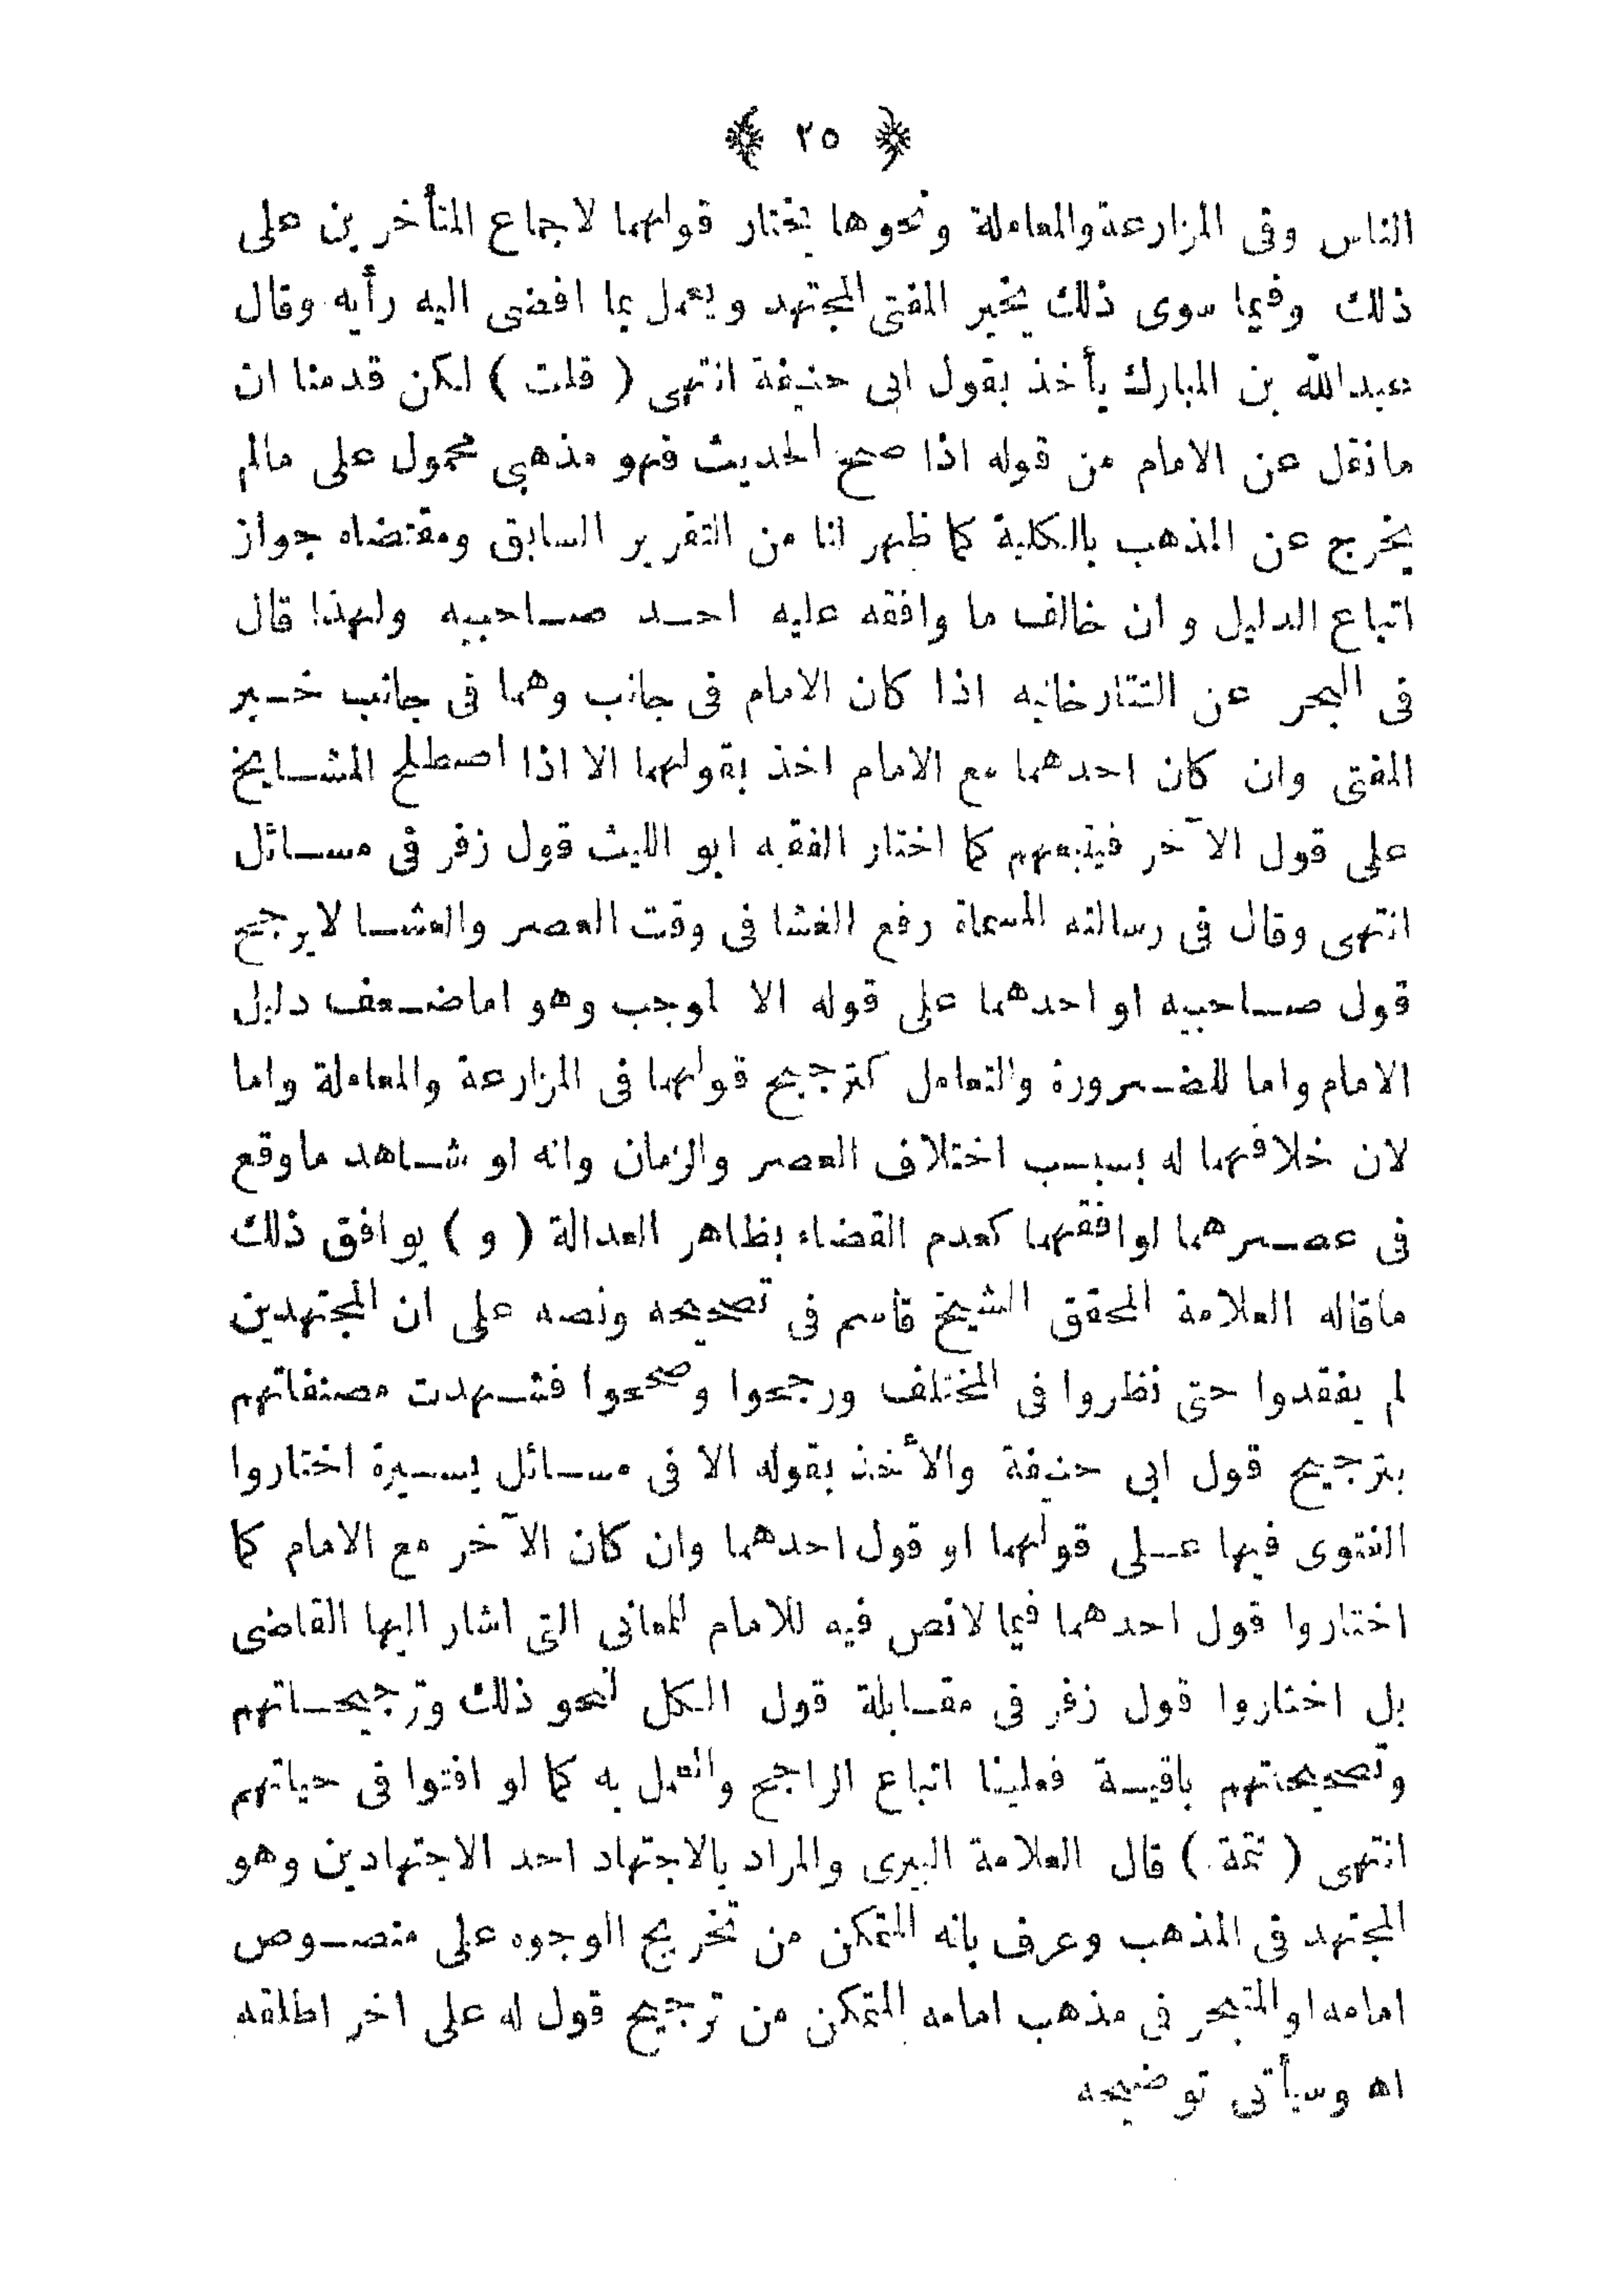 ﴿ ٢٥ ﴾
الناس وفى المزارعة والمعاملة ونحوها يختار قولهما لاجماع المتأخرين على
ذلك وفيما سوى ذلك يخير المفتى المجتهد ويعمل بما افضى اليه رأيه وقال
عبدالله بن المبارك يأخذ بقول ابى حنيفة انتهى ( قلت ) لكن قدمنا ان
مانقل عن الامام من قوله اذا صح الحديث فهو مذهبى محمول على مالم
يخرج عن المذهب بالكلية كما ظهر لنا من التقرير السابق ومقتضاه جواز
اتباع الدليل وان خالف ما وافقه عليه احد صاحبيه ولهذا قال
فى البحر عن التتارخانيه اذا كان الامام فى جانب وهما فى جانب خير
المفتى وان كان احدهما مع الامام اخذ بقولهما الا اذا اصطلح المشايخ
على قول الآخر فيتبعهم كما اختار الفقيه ابو الليث قول زفر فى مسائل
انتهى وقال فى رسالته المسماة رفع الغشا فى وقت العصر والعشا لايرجح
قول صاحبيه او احدهما على قوله الا لموجب وهو اما ضعف دليل
الامام واما للضرورة والتعامل كترجيح قولهما فى المزارعة والمعاملة واما
لان خلافهما له بسبب اختلاف العصر والزمان وانه لو شاهد ماوقع
فى عصرهما لوافقهما كعدم القضاء بظاهر العدالة ( و ) يوافق ذلك
ماقاله العلامة المحقق الشيخ قاسم فى تصحيحه ونصه على ان المجتهدين
لم يفقدوا حتى نظروا فى المختلف ورجحوا وصححوا فشهدت مصنفاتهم
بترجيح قول ابى حنيفة والأخذ بقوله الا فى مسائل يسيرة اختاروا
الفتوى فيها على قولهما او قول احدهما وان كان الآخر مع الامام كما
اختاروا قول احدهما فيما لانص فيه للامام للمعانى التى اشار اليها القاضى
بل اختاروا قول زفر فى مقابلة قول الكل لنحو ذلك وترجيحاتهم
وتصحيحتهم باقية فعلينا اتباع الراجح والعمل به كما لو افتوا فى حياتهم
انتهى ( تتمة ) قال العلامة البيرى والمراد بالاجتهاد احد الاجتهادين وهو
المجتهد فى المذهب وعرف بانه المتمكن من تخريج الوجوه على منصوص
امامه او المتبحر فى مذهب امامه المتمكن من ترجيح قول له على اخر اطلقه
اه وسيأتى توضيحه